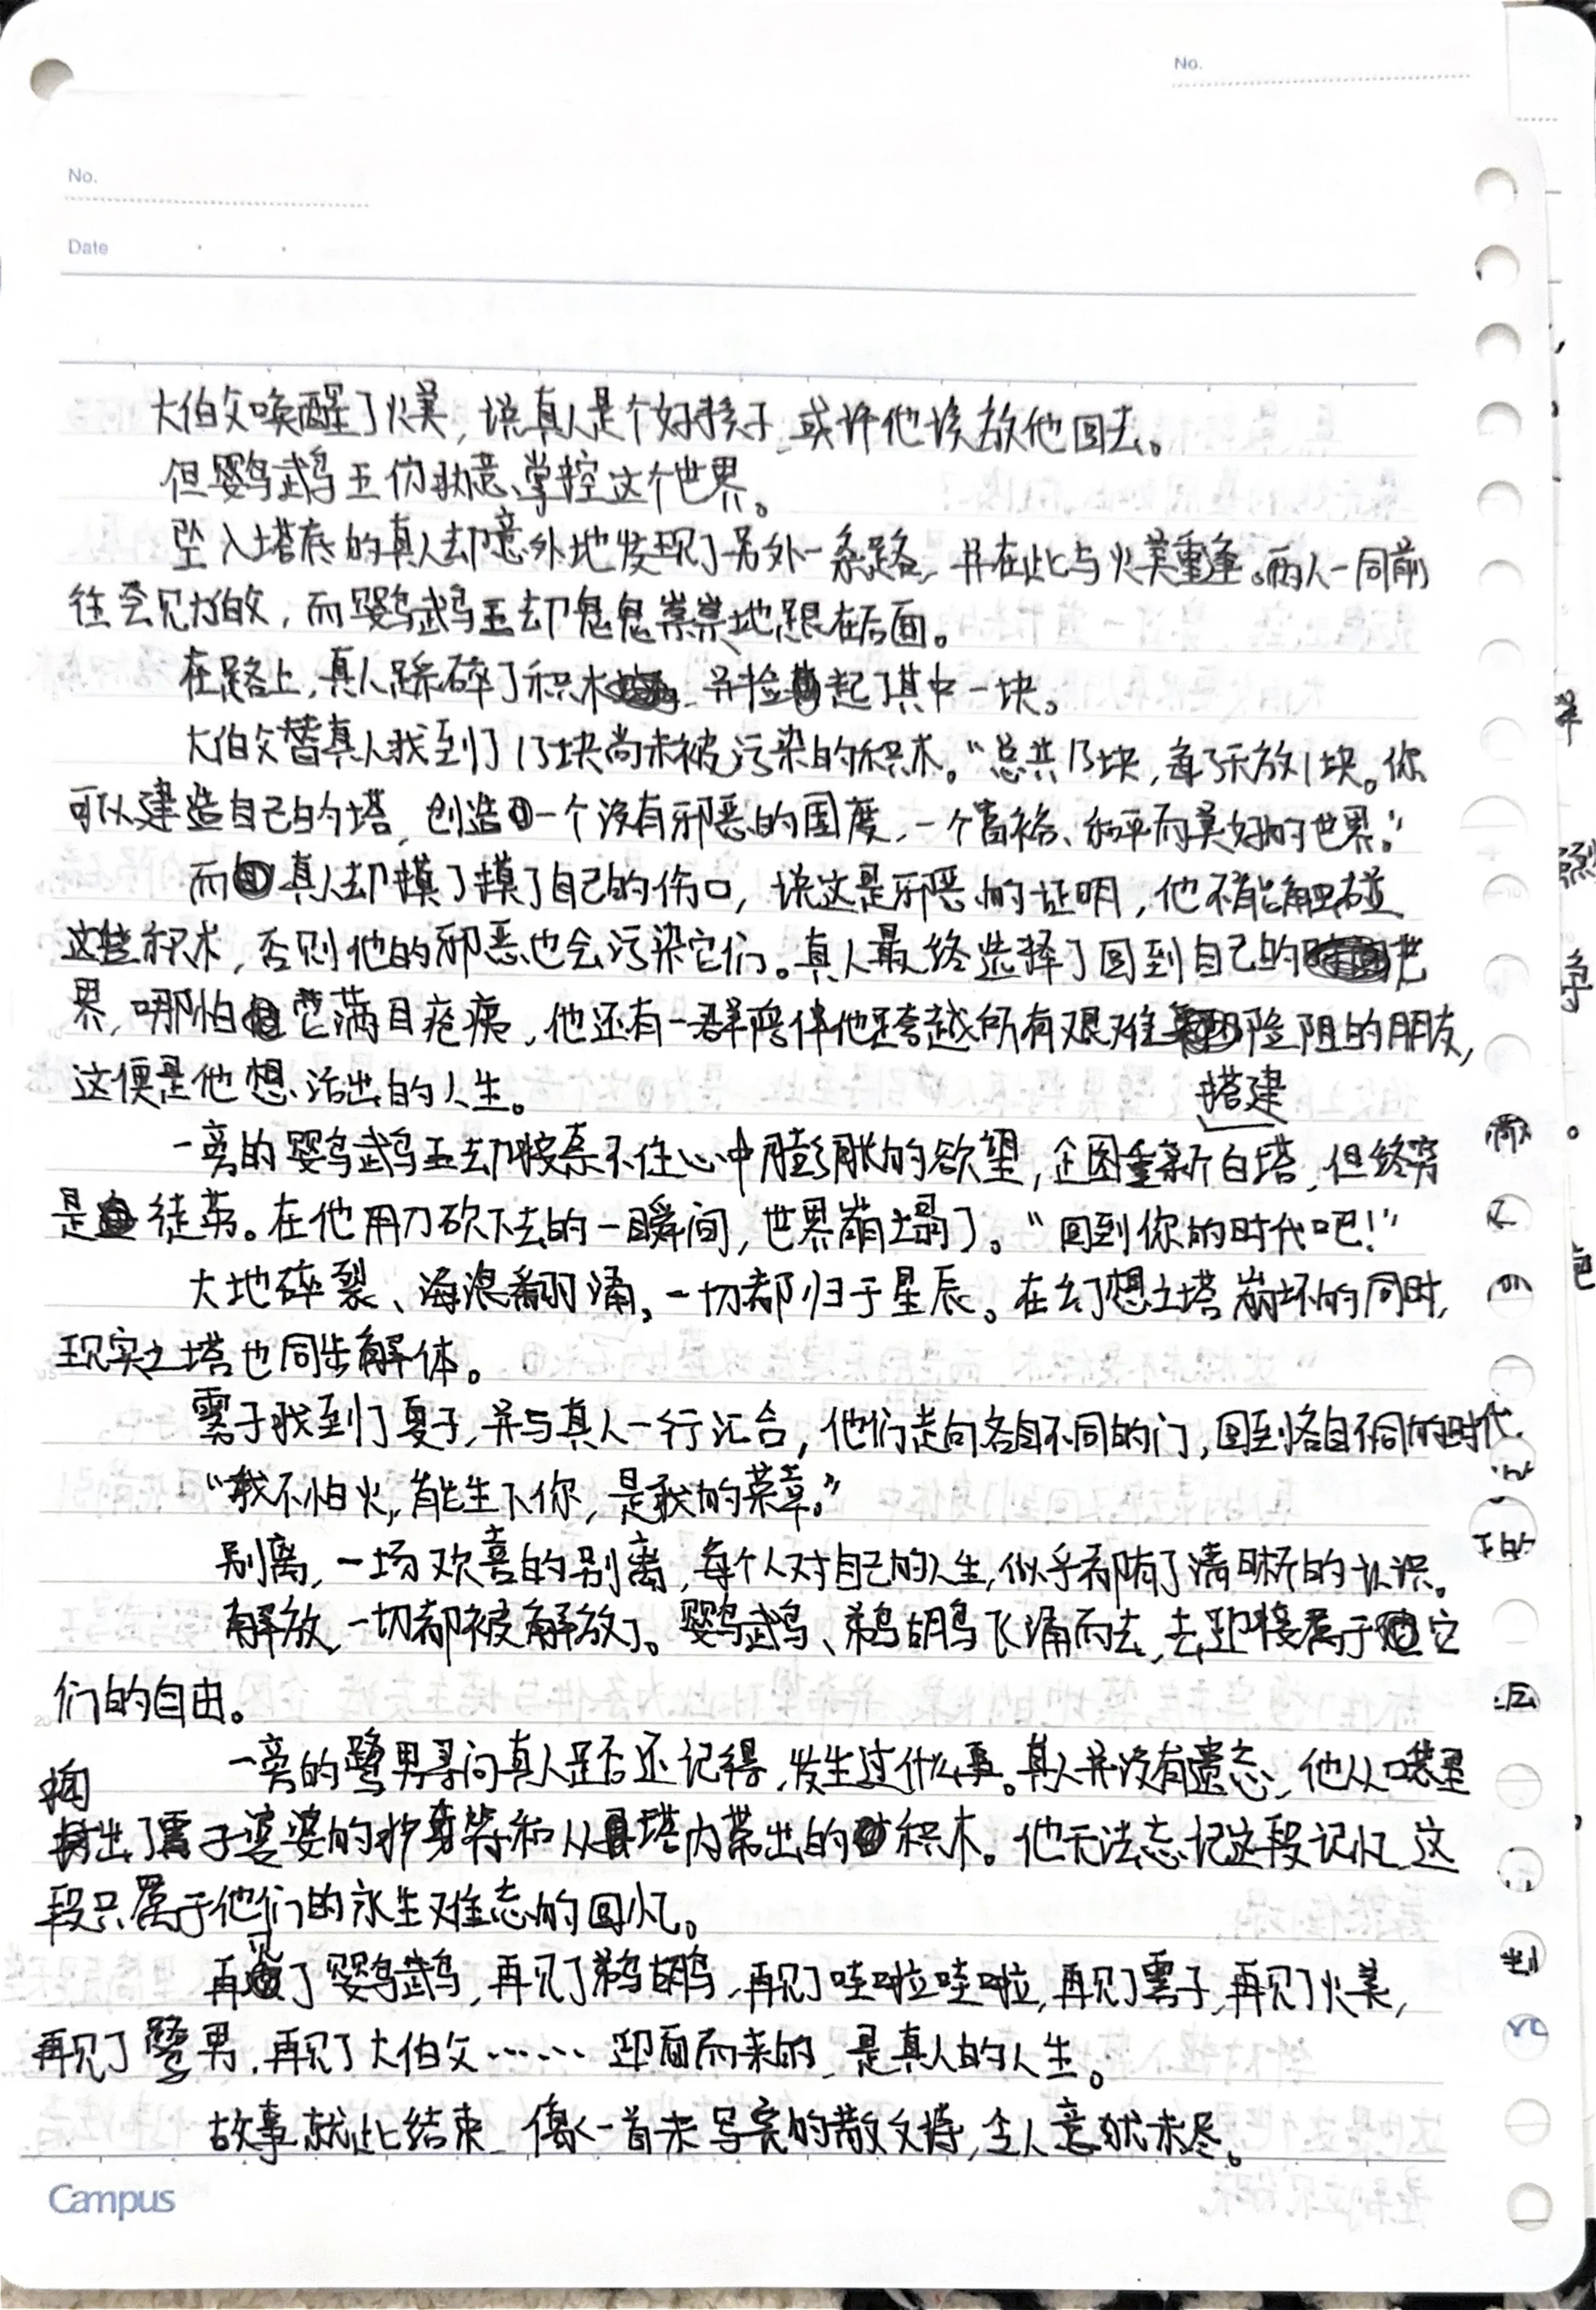 No.
No.
Date
大伯父唤醒了火美，说真人是个好孩子，或许他该放他回去。
但鹦鹉王仍执意掌控这个世界。
坠入塔底的真人却意外地发现了另外一条路，并在此与火美重逢。两人一同前
往会见大伯父，而鹦鹉王却鬼鬼祟祟地跟在后面。
在路上，真人踩碎了积木，并捡起了其中一块。
大伯父替真人找到了13块尚未被污染的积木。“总共13块，每3天放1块。你
可以建造自己的塔，创造一个没有邪恶的国度，一个富裕、和平而美好的世界。”
而真人却摸了摸了自己的伤口，说这是邪恶的证明，他不能触碰
这些积木，否则他的邪恶也会污染它们。真人最终选择了回到自己的世
界，哪怕它满目疮痍，他还有一群陪伴他跨越所有艰难险阻的朋友，
这便是他想活出的人生。
搭建
一旁的鹦鹉王却按奈不住心中膨胀的欲望，企图重新白塔，但终究
是徒劳。在他用刀砍下去的一瞬间，世界崩塌了。“回到你的时代吧！”
大地碎裂、海浪翻涌，一切都归于星辰。在幻想之塔崩坏的同时，
现实之塔也同步解体。
雾子找到了夏子，并与真人一行汇合，他们走向各自不同的门，回到各自不同的时代。
“我不怕火，能生下你，是我的荣幸。”
别离，一场欢喜的别离，每个人对自己的人生，似乎都有了清晰的认识。
解放，一切都被解放了。鹦鹉、鹈鹕飞涌而去，去迎接属于它
们的自由。
一旁的鹭男寻问真人是否还记得，发生过什么事。真人并没有遗忘，他从口袋里
掏出了雾子婆婆的护身符和从塔内带出的积木。他无法忘记这段记忆，这
段只属于他们的永生难忘的回忆。
再见了鹦鹉，再见了鹈鹕，再见了哇啦哇啦，再见了雾子，再见了火美，
再见了鹭男，再见了大伯父……迎面而来的，是真人的人生。
故事就此结束，像一首未写完的散文诗，令人意犹未尽。
Campus